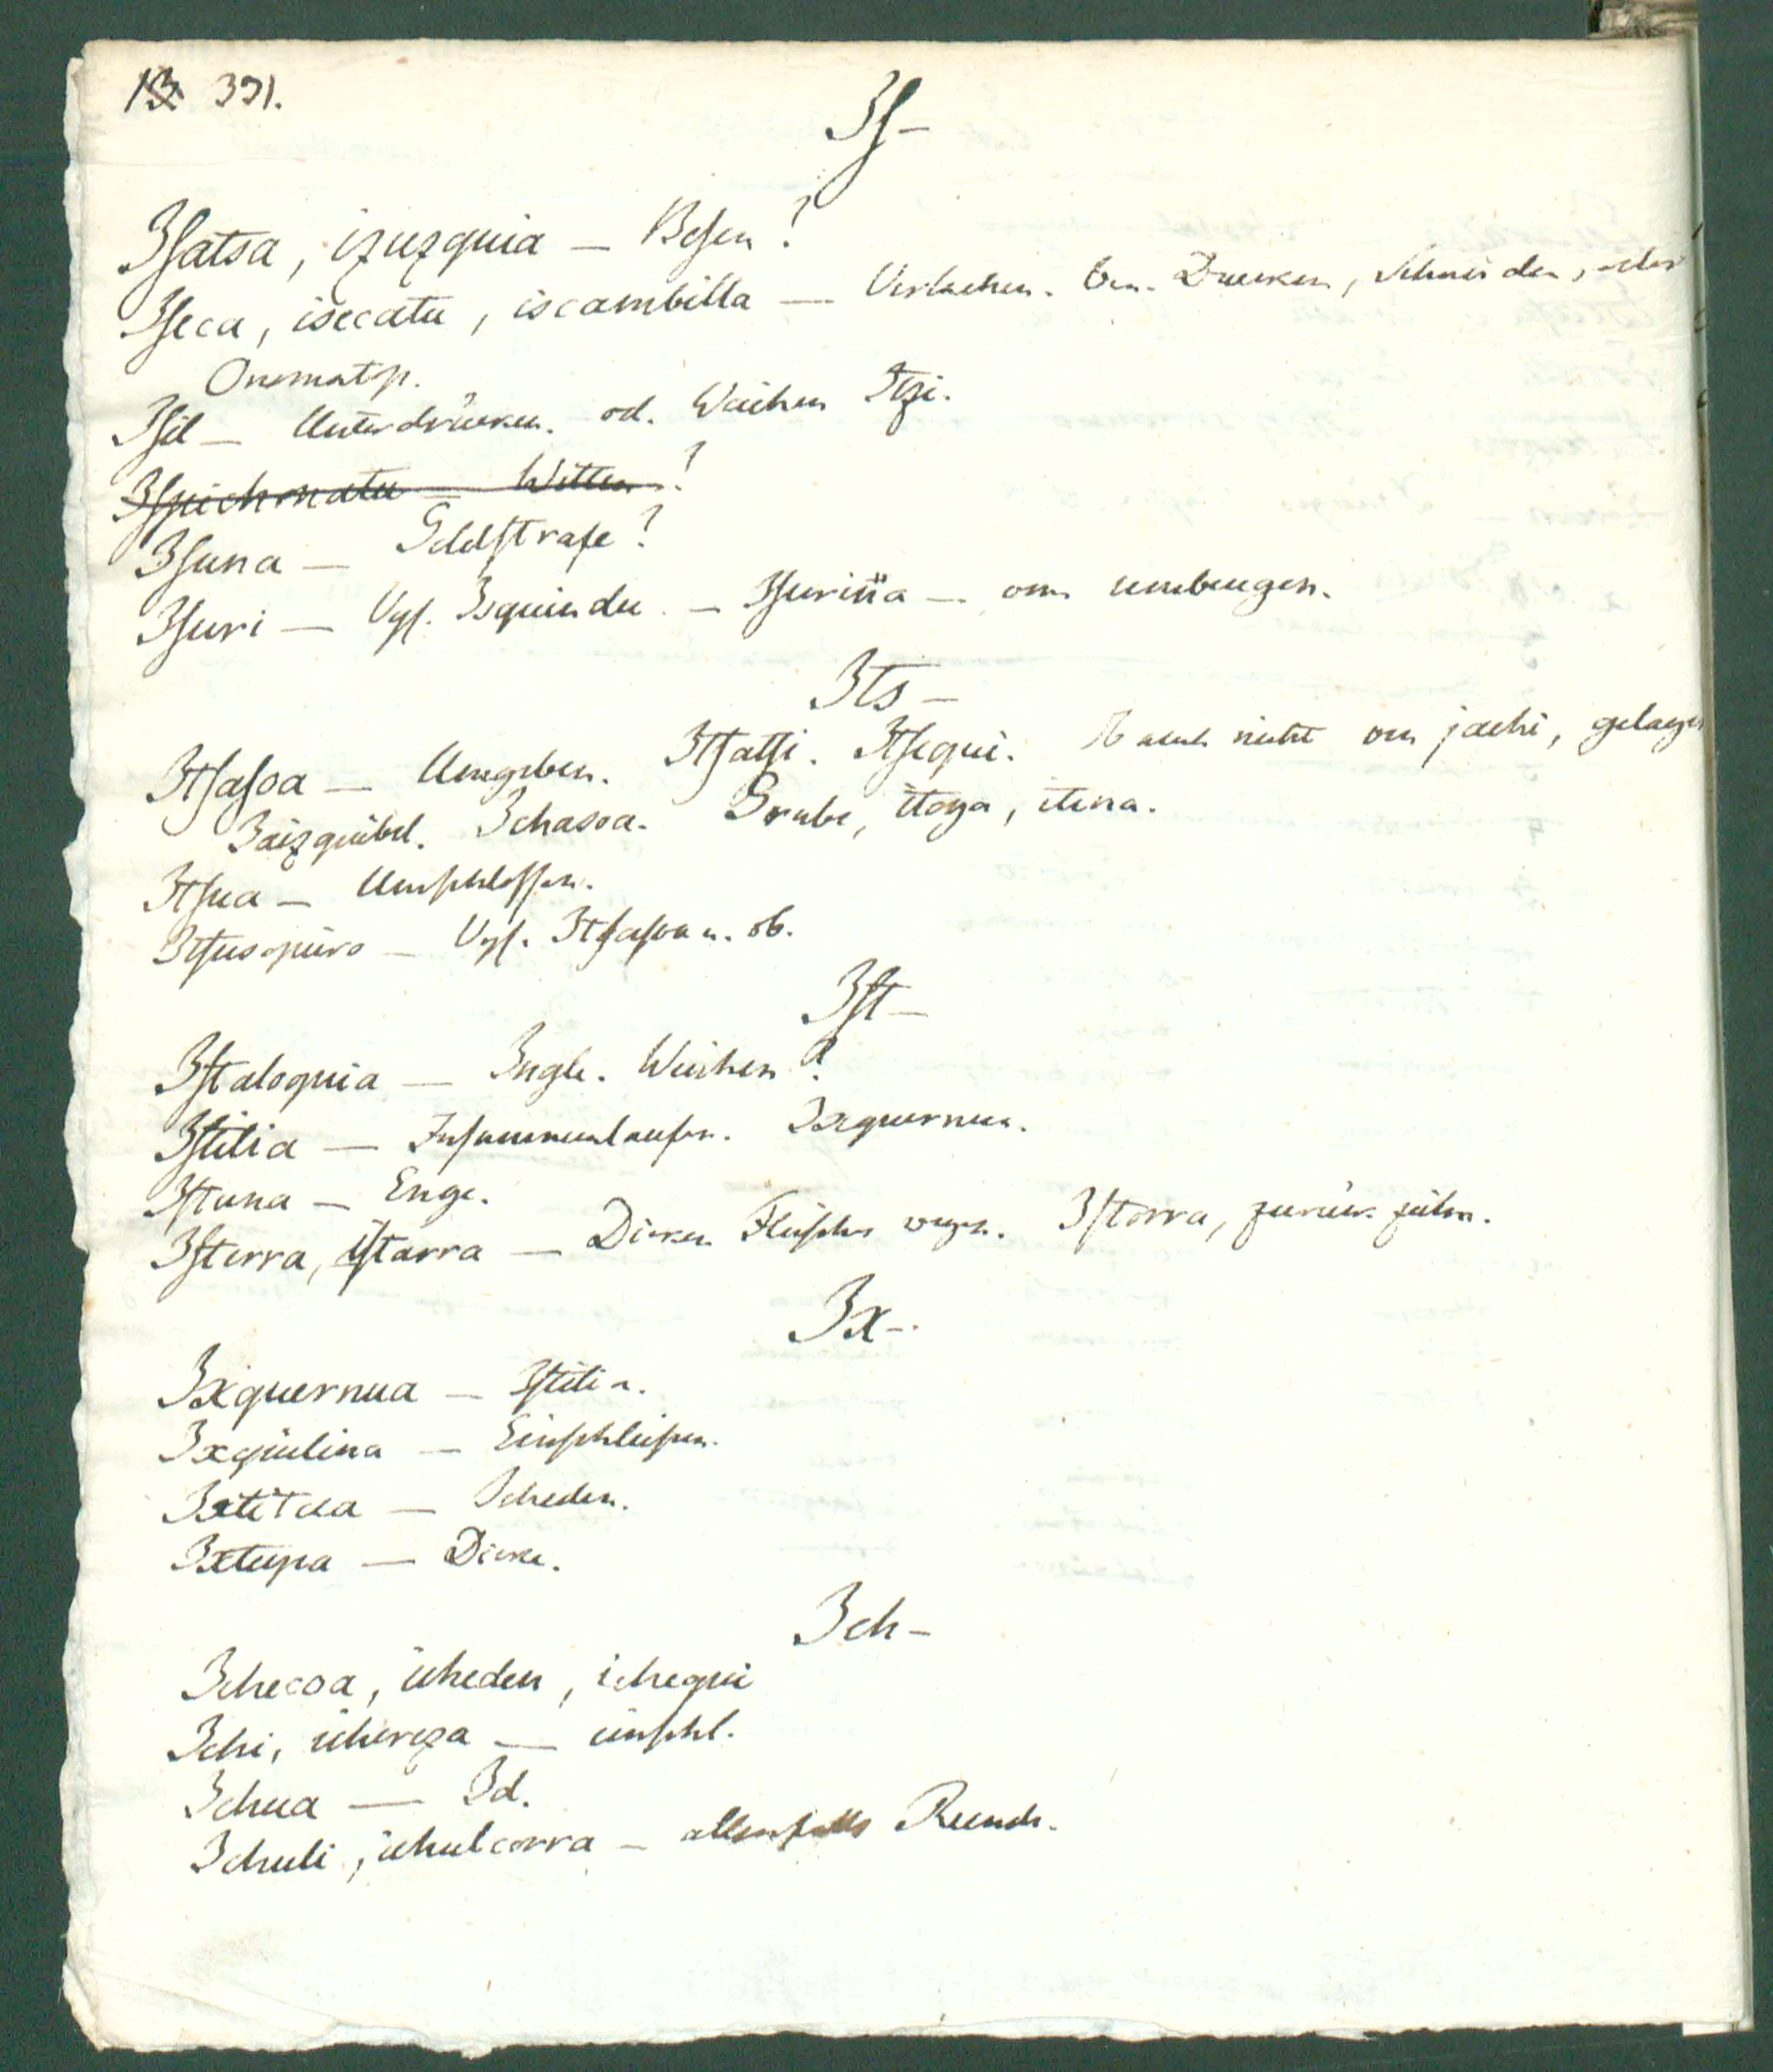 13 391.
Is-
Isatsa, izuzquia — Besen?
Iseca, isecatu, iscambilla — Verlachen. Drucken, Schneiden, oder
Onomatp.
Isil — Unterdrücken. od. Weichen Itzi.
Isuna — Geldstrafe?
Isuri — Vgl. Isquindu. — Isuriña — umbeugen.
Its-
Itsasoa — Umgeben. Itsatsi. Itsequi. nicht jachi, gelagen
Jaizquibel. Ichasoa. Grube, itoya, itena.
Itsua — Umschlossen.
Itsusquiro — Vgl. Itsasoa u. ob.
Ist-
Istaloquia — Ingle. Weichen?
Istilia — Zusammenlaufen. Ixquernua.
Istuna — Enge.
Isterra, istarra — Dicken Fleisches wegen. Istorra, zurük ziehn.
Ix-.
Ixquernua — Istilia.
Ixquilina — Einschleifen.
Ixtitua — Icheden.
Ixtupa — Dicke.
Ich-
Ichecoa, icheden, ichequi
Ichi, icherza — einschl.
Ichua — Id.
Ichuli, ichulcorra — allenfalls Runde.